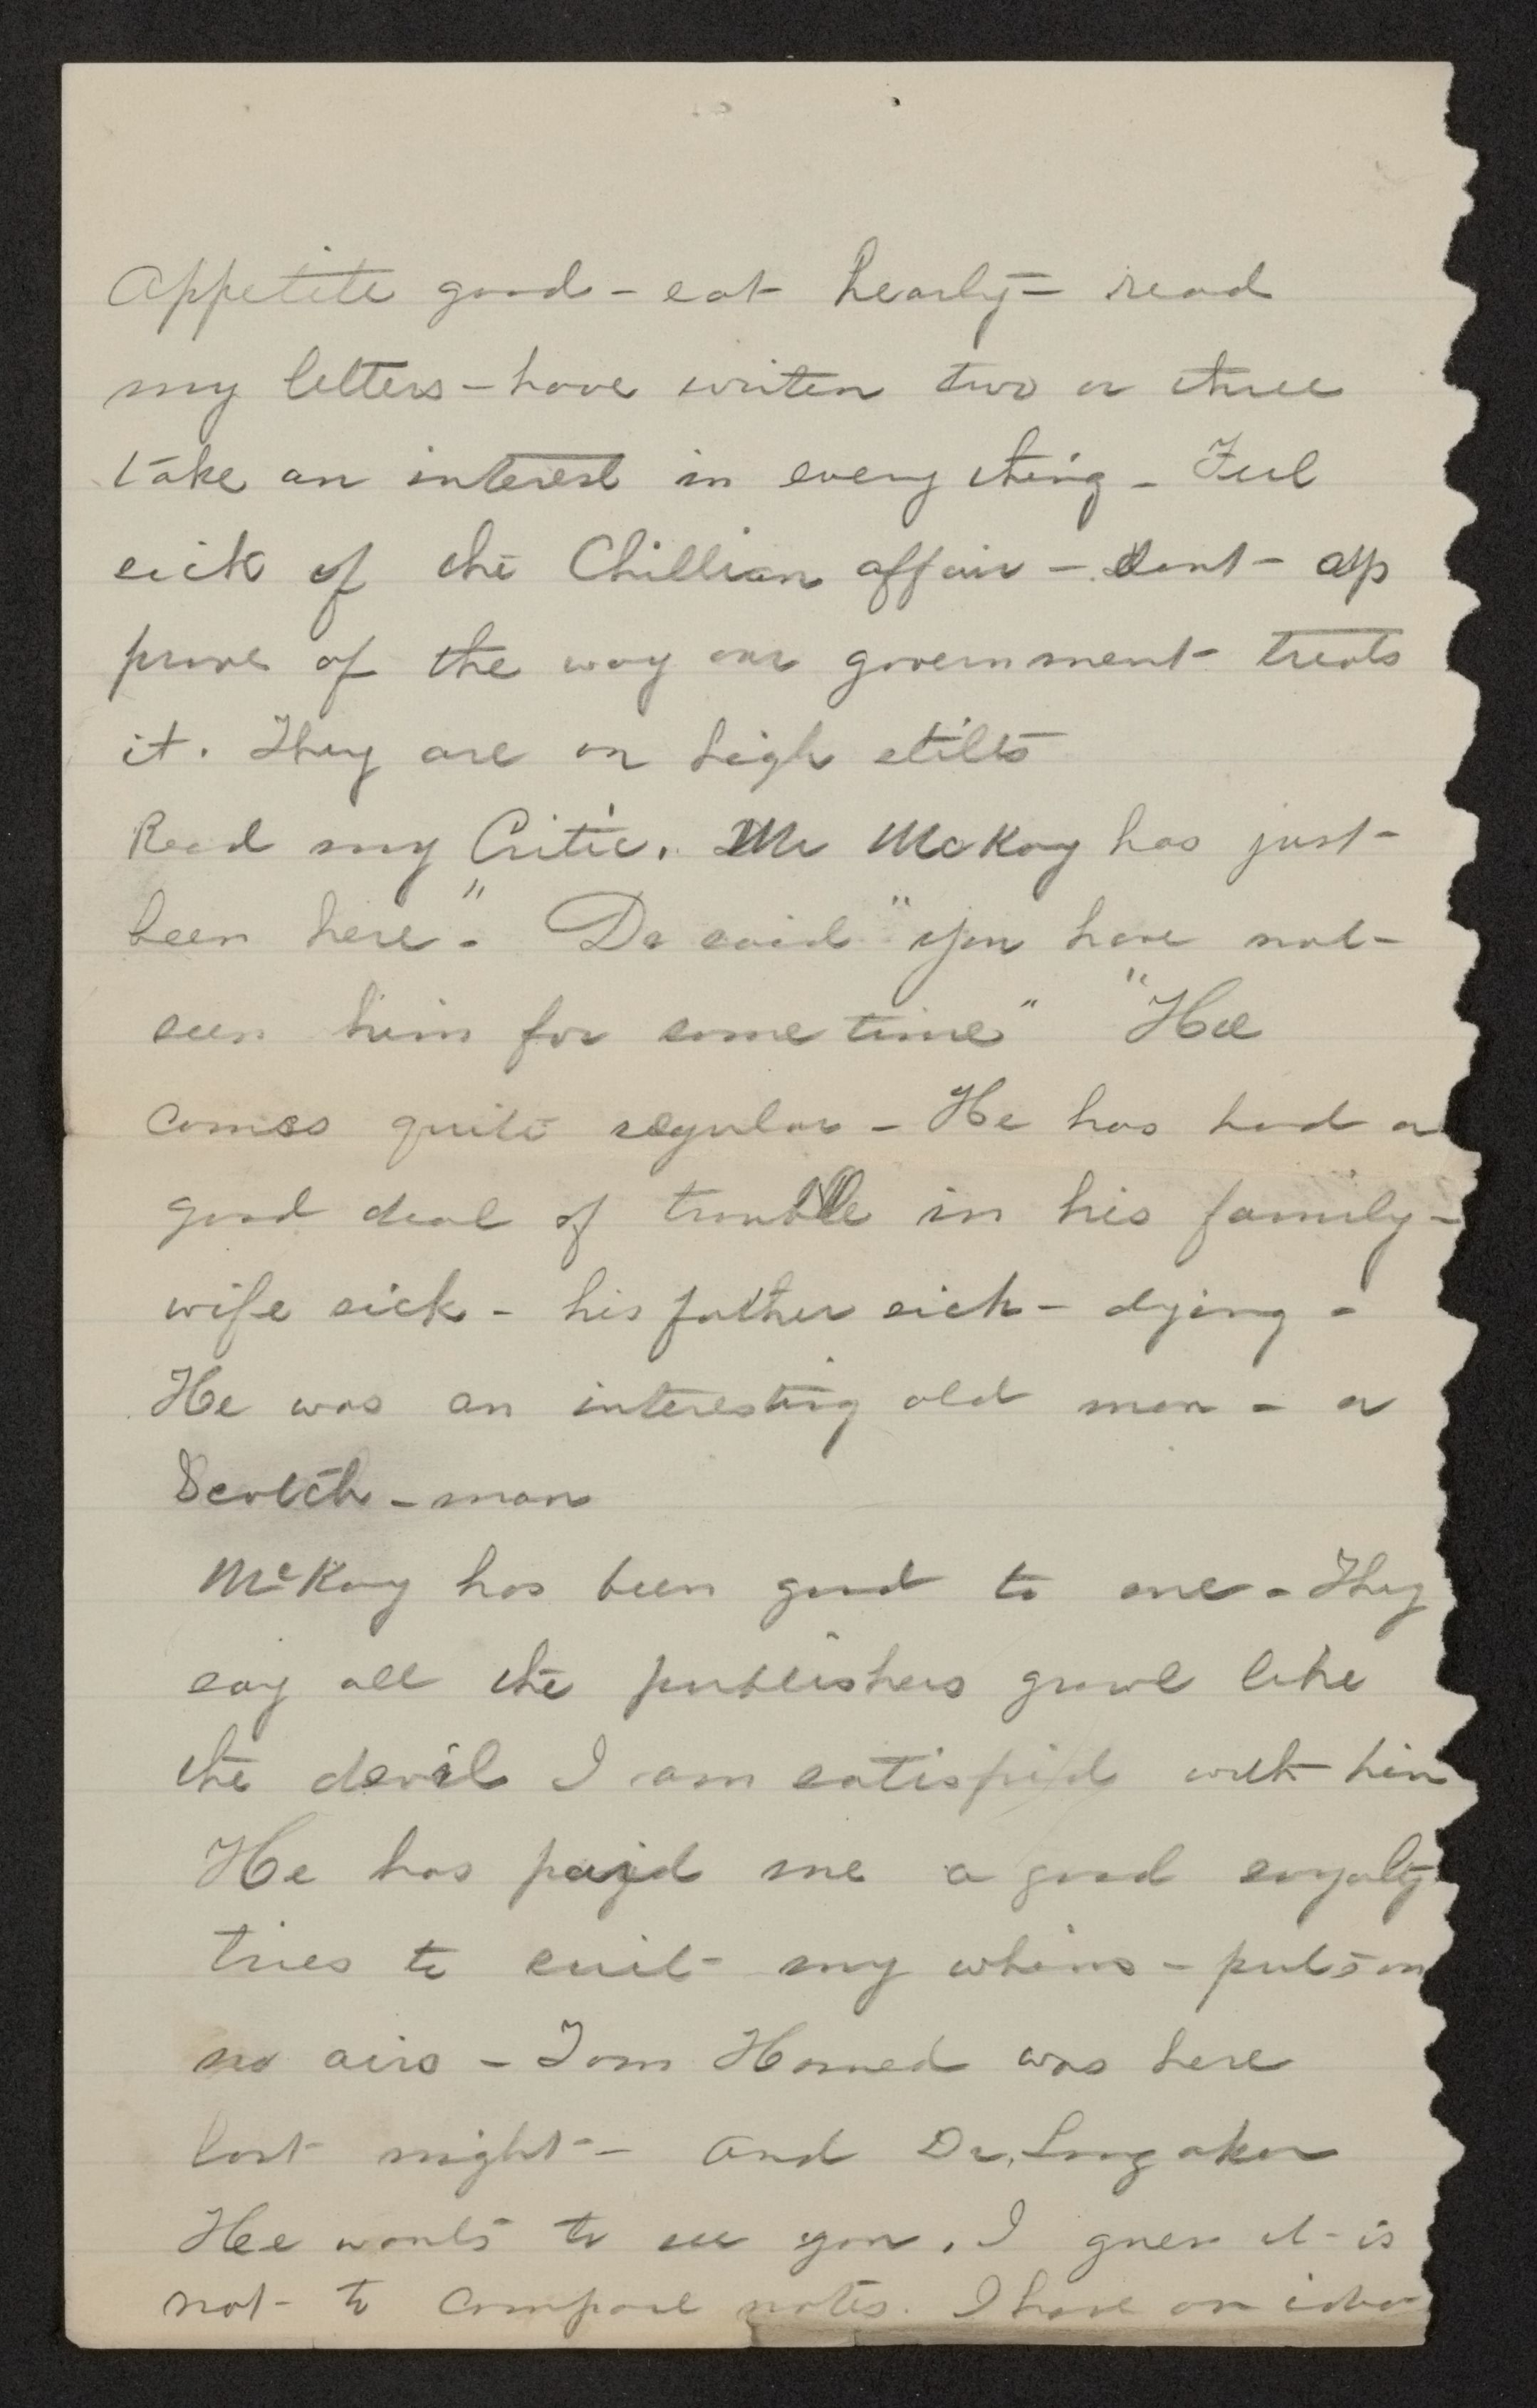 Appetite good - eat hearty - read
my letters - have writen two or three
take an interest in every thing - Feel
sick of the Chillian affair - dont - ap
prove of the way our government treats
it. They are on high stilts
Read my Critic. Mr McKay has just -
been here" - Dr said "you have not -
seen him for some time" "Hee
comes quite regular - He has had a
good deal of trouble in his family -
wife sick - his father sick - dying -
He was an interesting old man - a
Scotch - man
McKay has been good to me - They
say all the publishers growl like
the devil I am satisfid with him
He has payed me a good royalty
tries to suit my whims - puts on
no airs - Tom Harned was here
last night - and Dr. Longaker
Hee wants to see you. I guess it is
not - to compare notes. I have an idea